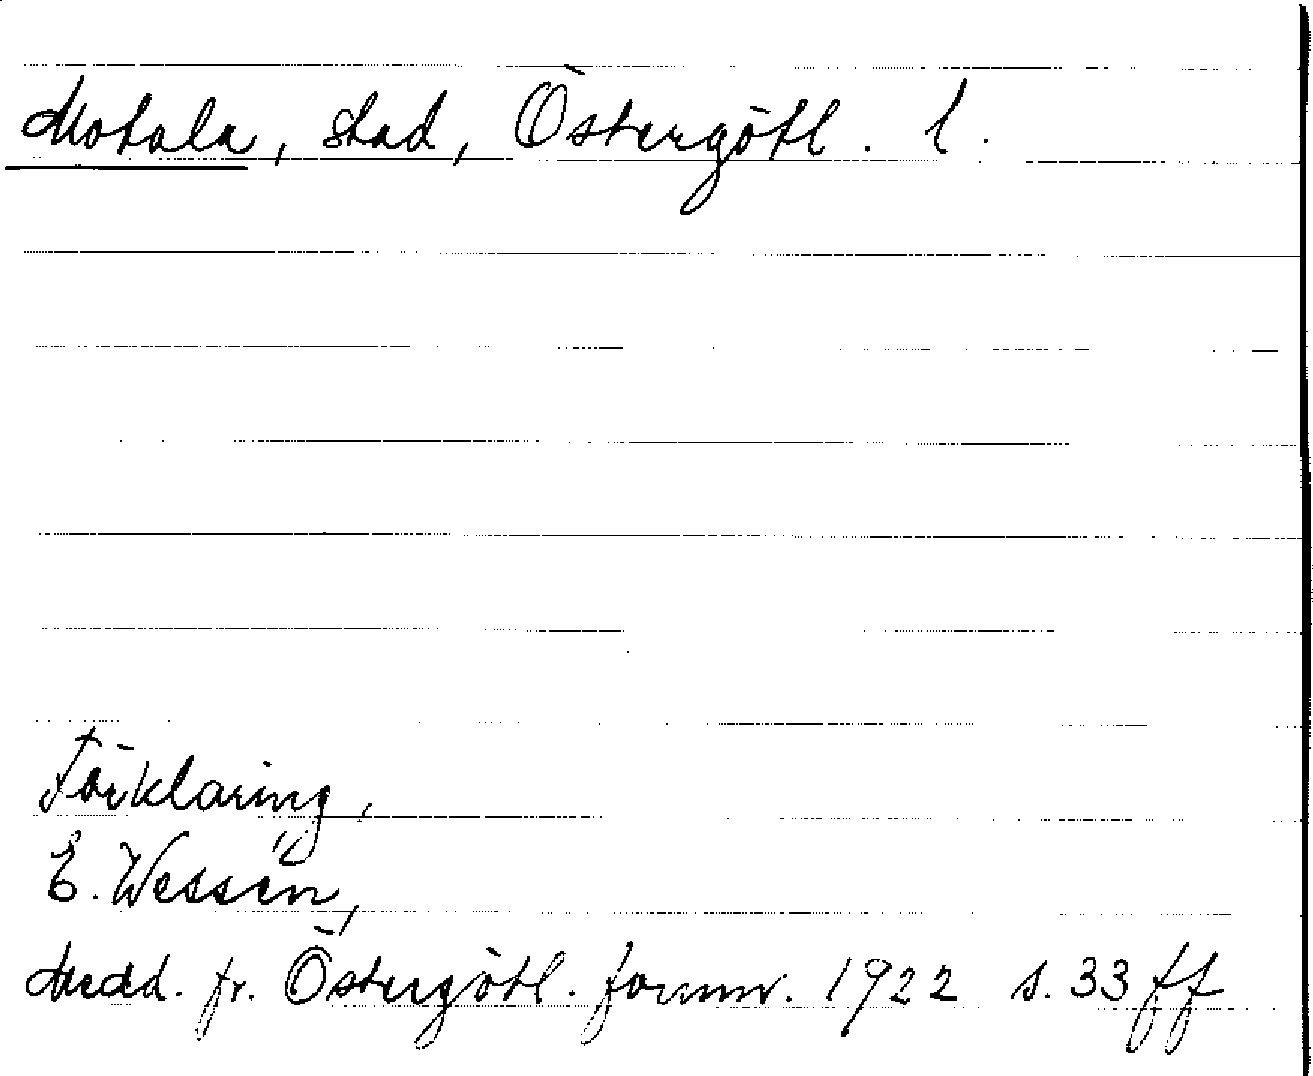 Motala, stad, Östergötl. l.
Förklaring,
E. Wessén,
Medd. fr. Östergötl. fornm. 1922 s. 33 ff